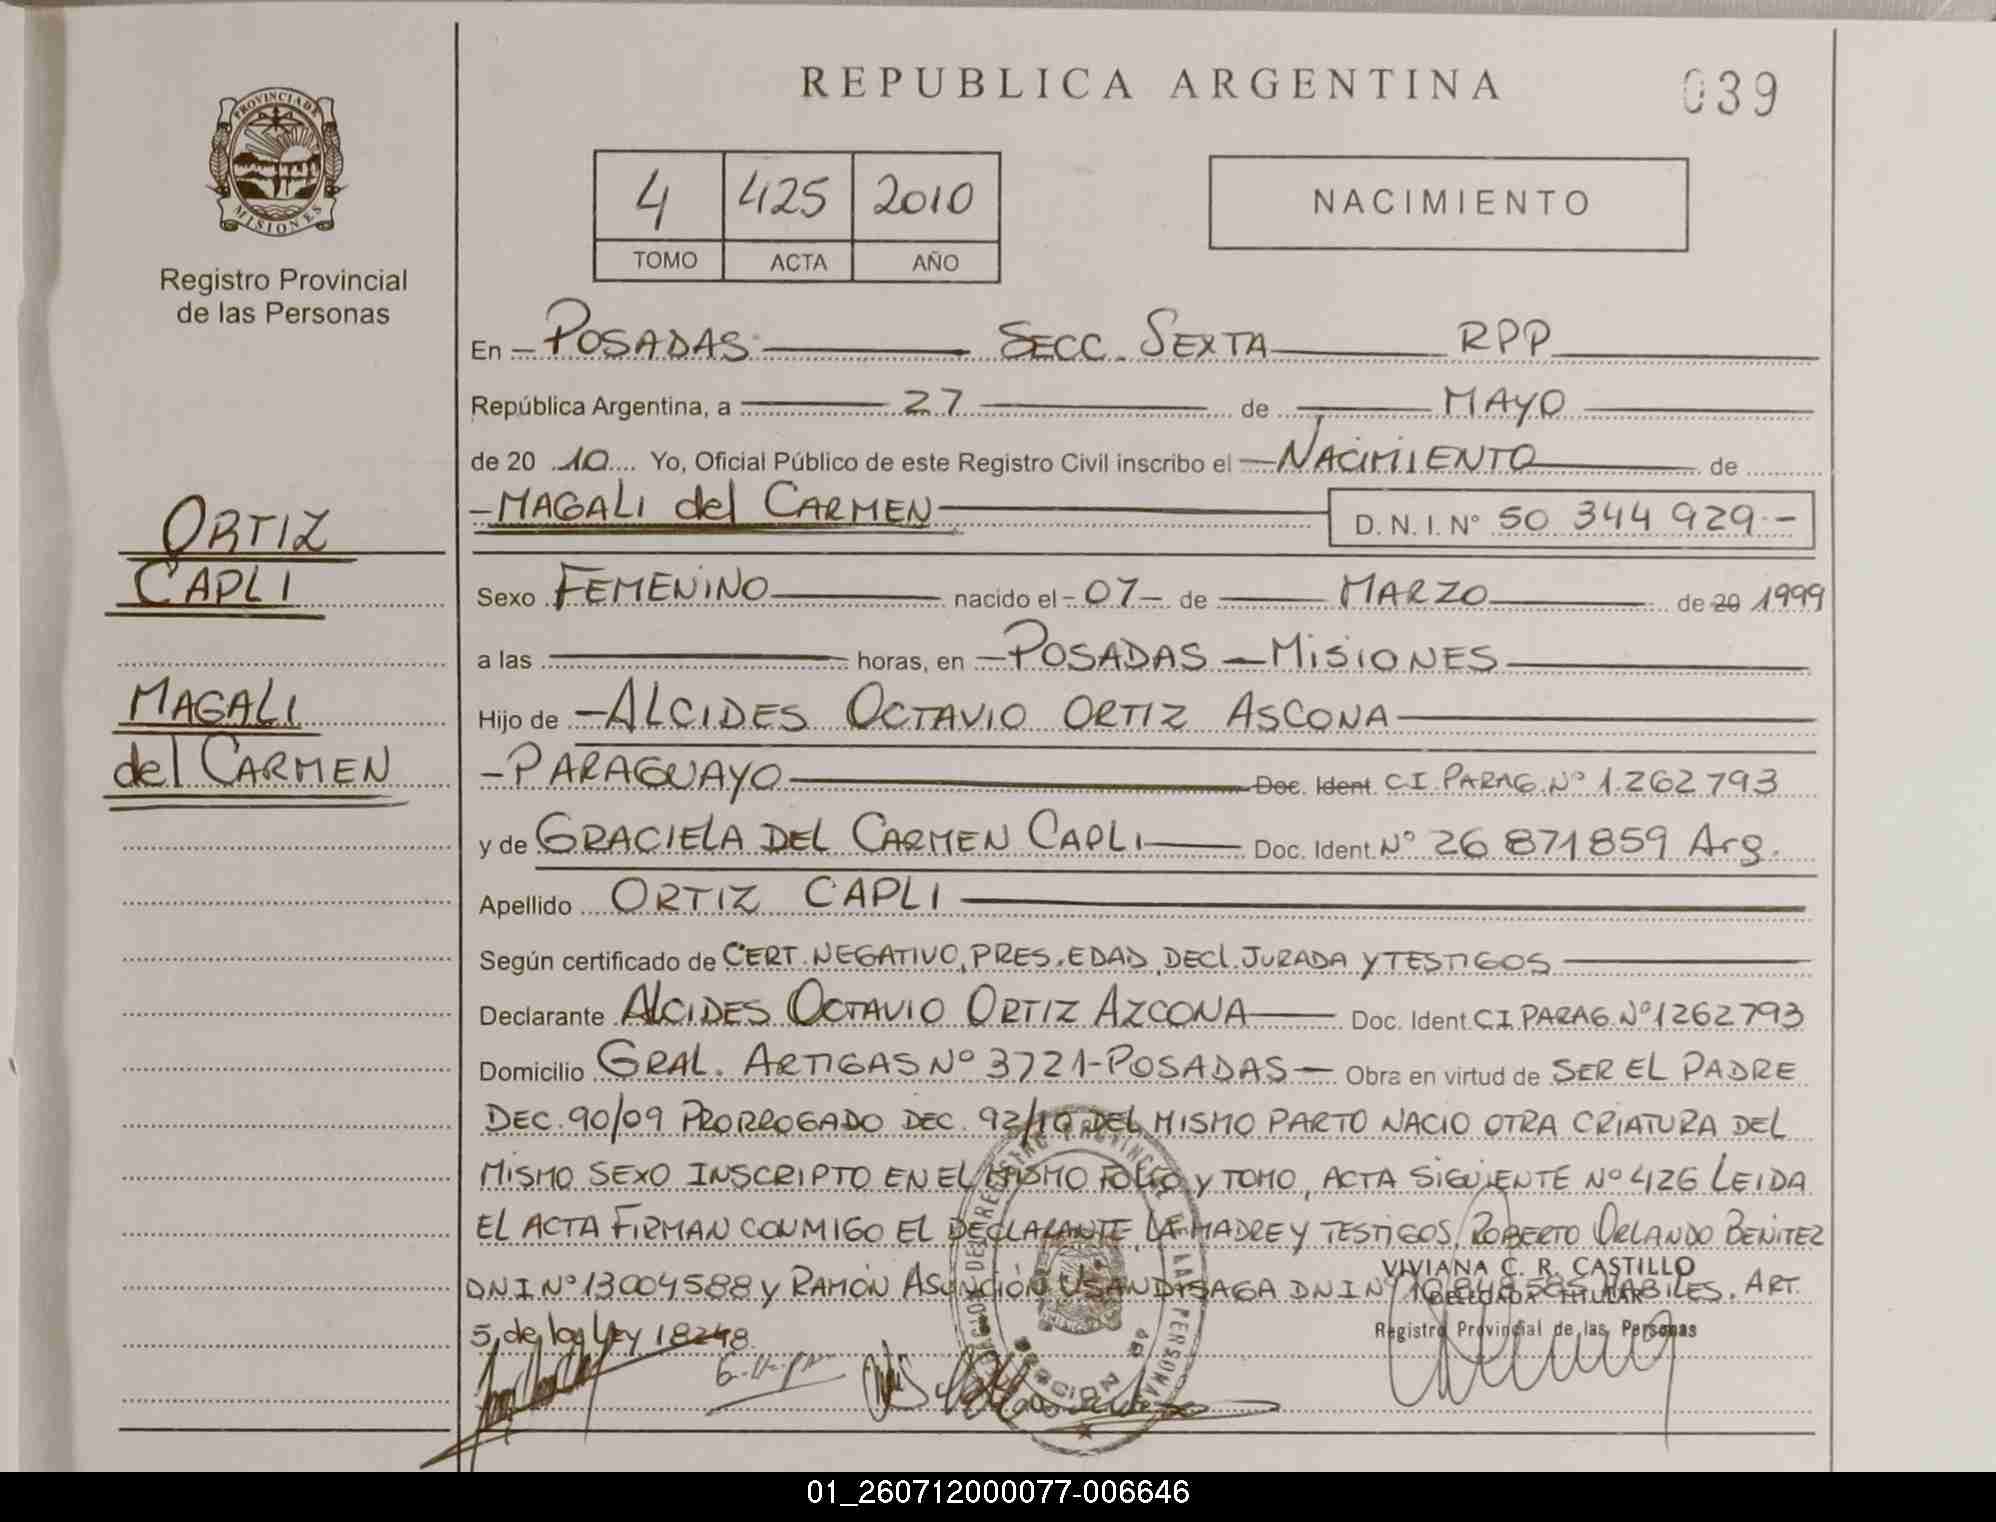 REPUBLICA ARGENTINA
039
PROVINCIA DE MISIONES
Registro Provincial
de las Personas
4 425 2010
TOMO ACTA AÑO
NACIMIENTO
En POSADAS SECC. SEXTA RPP
República Argentina, a 27 de MAYO
de 20 10 Yo, Oficial Público de este Registro Civil inscribo el NACIMIENTO de
MAGALI del CARMEN D. N. I. Nº 50 344 929.-
ORTIZ
CAPLI
MAGALI
del CARMEN
Sexo FEMENINO nacido el 07 de MARZO de 20 1999
a las horas, en POSADAS - MISIONES
Hijo de ALCIDES OCTAVIO ORTIZ ASCONA
PARAGUAYO Doc. Ident. CI PARAG. Nº 1.262793
y de GRACIELA DEL CARMEN CAPLI Doc. Ident. Nº 26 871859 Arg.
Apellido ORTIZ CAPLI
Según certificado de CERT. NEGATIVO, PRES. EDAD, DECL. JURADA Y TESTIGOS
Declarante ALCIDES OCTAVIO ORTIZ AZCONA Doc. Ident. CI PARAG. Nº 1262793
Domicilio GRAL. ARTIGAS Nº 3721 - POSADAS Obra en virtud de SER EL PADRE
DEC. 90/09 PRORROGADO DEC. 92/10 DEL MISMO PARTO NACIO OTRA CRIATURA DEL
MISMO SEXO INSCRIPTO EN EL MISMO FOLIO Y TOMO, ACTA SIGUIENTE Nº 426 LEIDA
EL ACTA FIRMAN CONMIGO EL DECLARANTE, LA MADRE Y TESTIGOS, ROBERTO ORLANDO BENITEZ
DNI Nº 13004588 y RAMÓN ASUNCIÓN USANDISAGA DNI Nº HABILES. ART.
5 de la Ley 18248
VIVIANA C. R. CASTILLO
DELEGADA TITULAR
Registro Provincial de las Personas
01_260712000077-006646